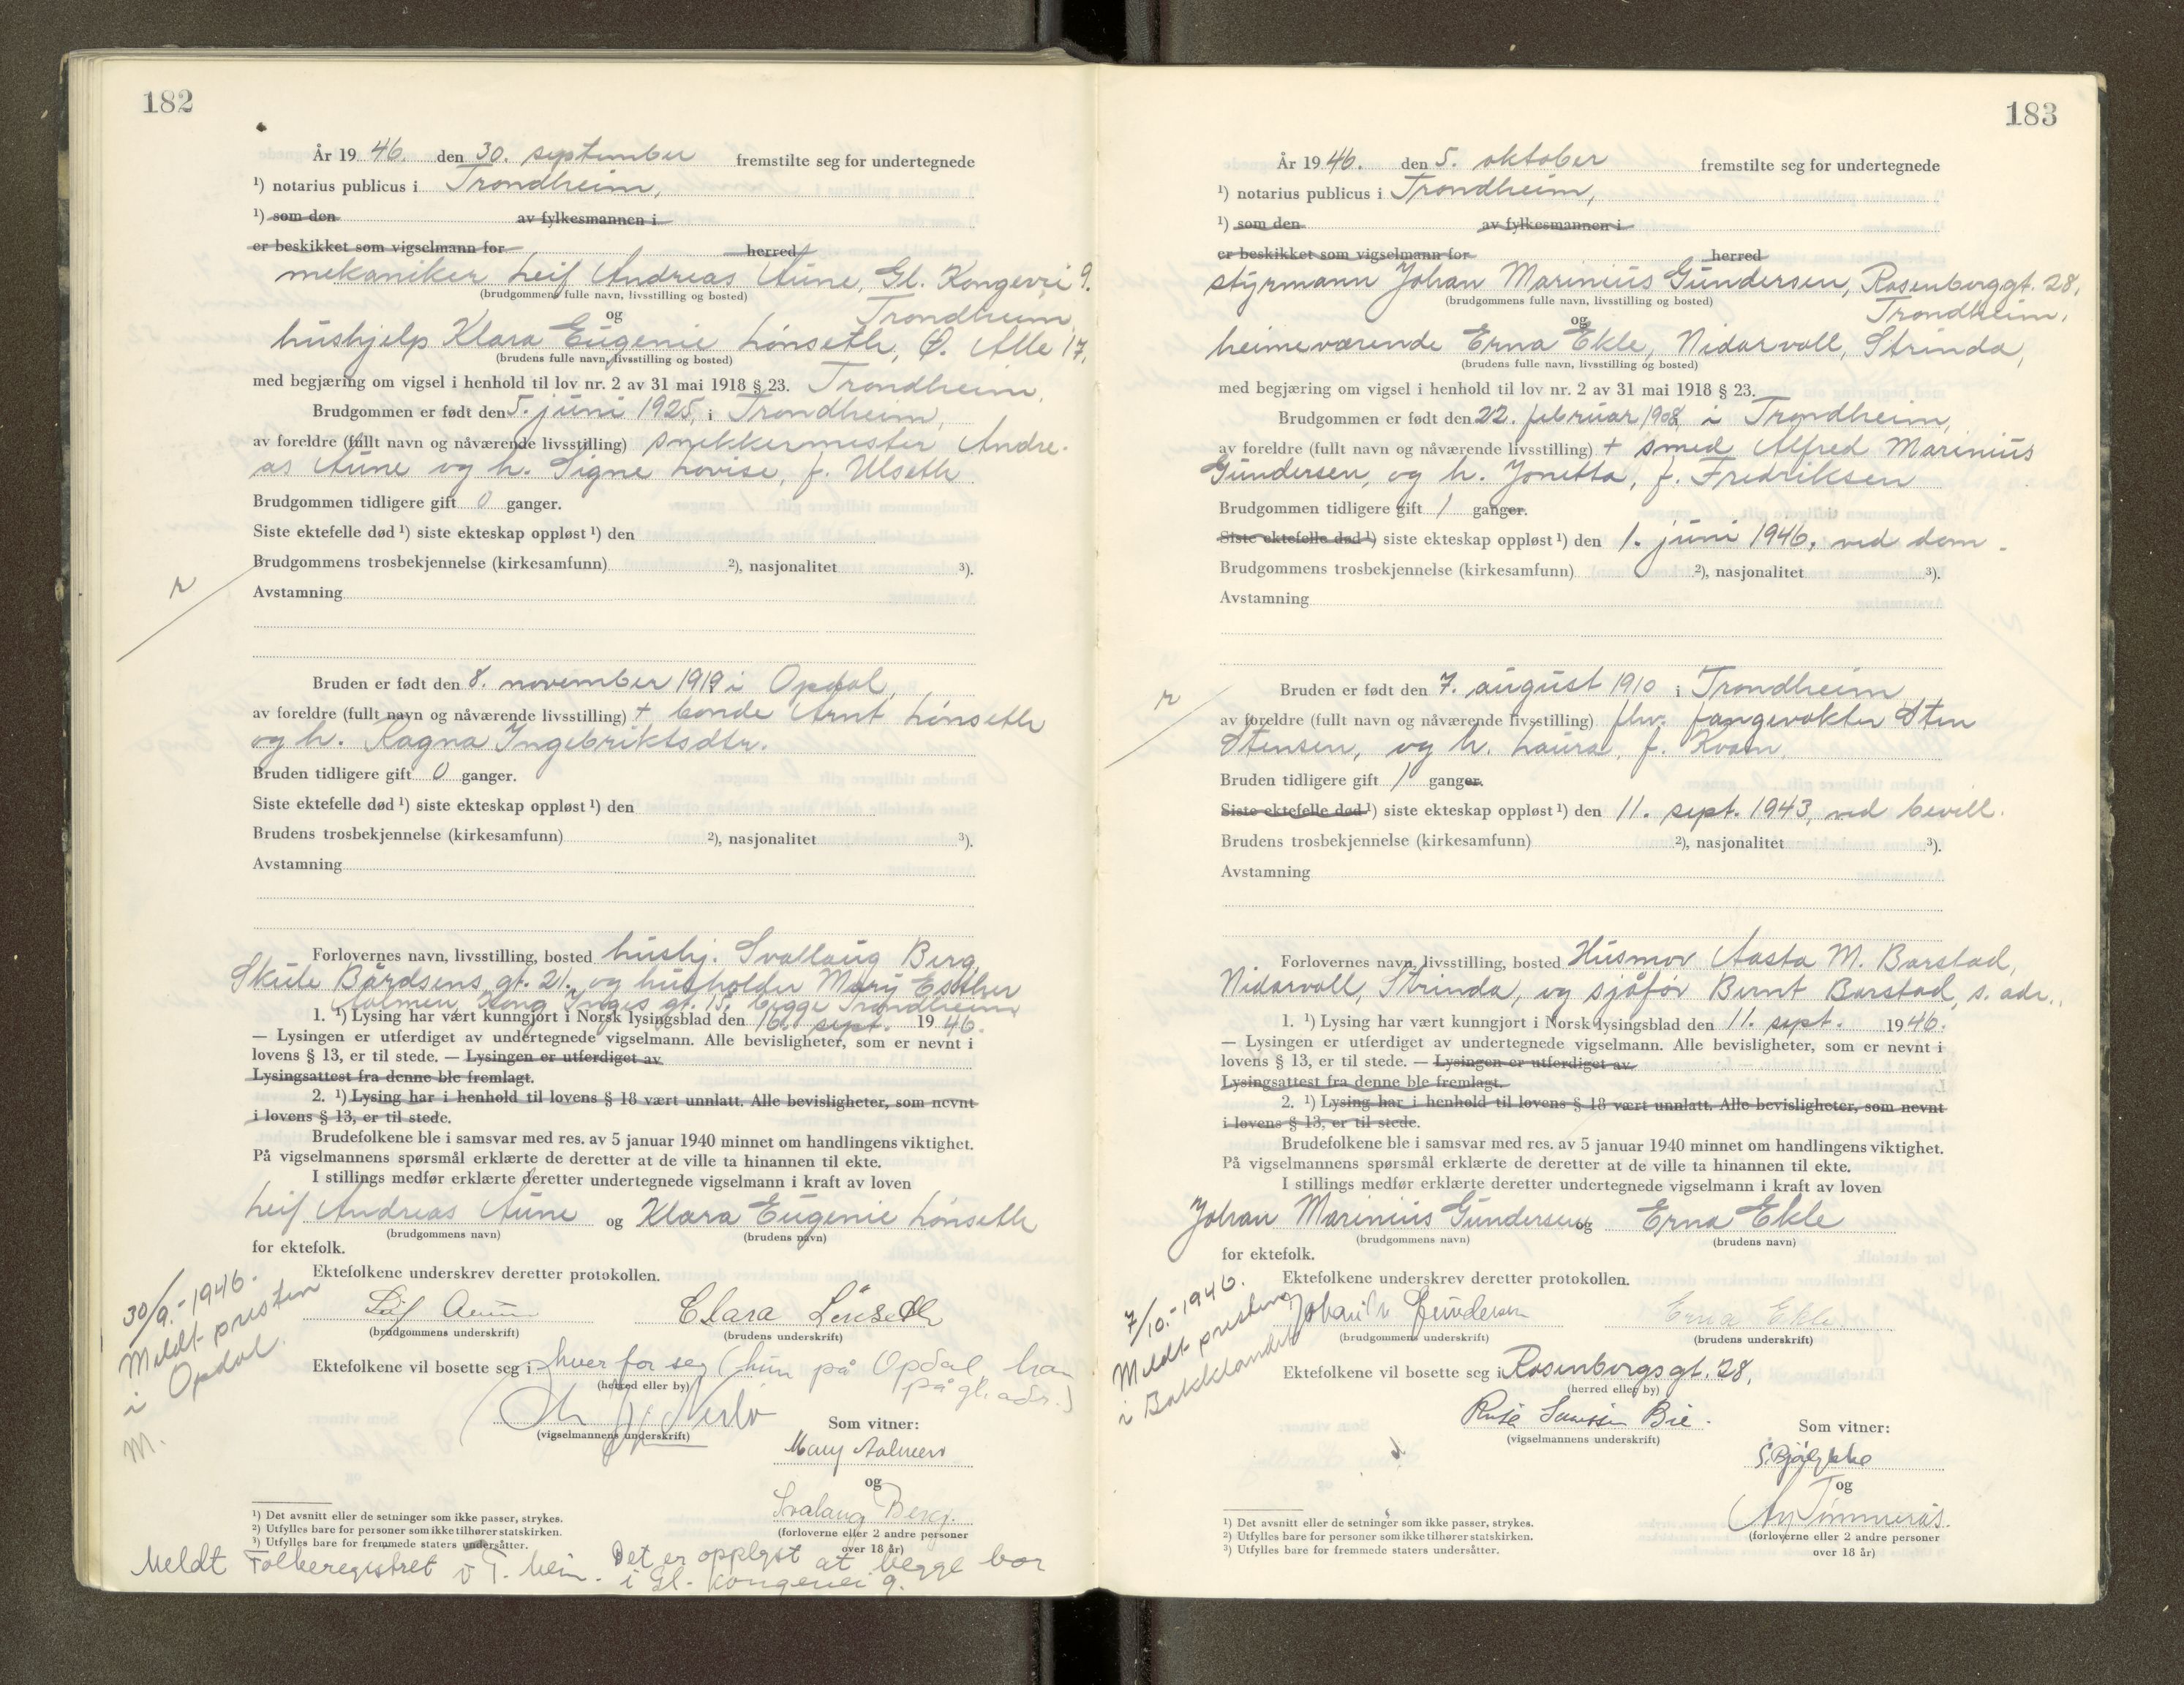 182
År 19 46. den 30. september fremstilte seg for undertegnede
¹) notarius publicus i Trondheim,
¹) som den av fylkesmannen i
er beskikket som vigselmann for herred
mekaniker Leif Andreas Aune, Gl. Kongevei 9.
(brudgommens fulle navn, livsstilling og bosted)
og Trondheim
hushjelp Klara Eugenie Lønseth, Ø. Alle 17,
(brudens fulle navn, livsstilling og bosted)
med begjæring om vigsel i henhold til lov nr. 2 av 31 mai 1918 § 23. Trondheim.
Brudgommen er født den 5. juni 1925, i Trondheim,
av foreldre (fullt navn og nåværende livsstilling) snekkermester Andre-
as Aune og h. Signe Lovise, f. Ulseth
Brudgommen tidligere gift 0 ganger.
Siste ektefelle død ¹) siste ekteskap oppløst ¹) den
Brudgommens trosbekjennelse (kirkesamfunn) ²), nasjonalitet ³).
Avstamning
Bruden er født den 8. november 1919 i Opdal,
av foreldre (fullt navn og nåværende livsstilling) + bonde Arnt Lønseth
og h. Ragna Ingebriktsdtr.
Bruden tidligere gift 0 ganger.
Siste ektefelle død ¹) siste ekteskap oppløst ¹) den
Brudens trosbekjennelse (kirkesamfunn) ²), nasjonalitet ³).
Avstamning
Forlovernes navn, livsstilling, bosted hushj. Svallaug Berg,
Skule Bårdsens gt. 21. og husholder Mary Esther
Aalmen, Kong Inges gt. 15, begge Trondheim
1. ¹) Lysing har vært kunngjort i Norsk lysingsblad den 16. sept. 19 46.
— Lysingen er utferdiget av undertegnede vigselmann. Alle bevisligheter, som er nevnt i
lovens § 13, er til stede. — Lysingen er utferdiget av
Lysingsattest fra denne ble fremlagt.
2. ¹) Lysing har i henhold til lovens § 18 vært unnlatt. Alle bevisligheter, som nevnt
i lovens § 13, er til stede.
Brudefolkene ble i samsvar med res. av 5 januar 1940 minnet om handlingens viktighet.
På vigselmannens spørsmål erklærte de deretter at de ville ta hinannen til ekte.
I stillings medfør erklærte deretter undertegnede vigselmann i kraft av loven
Leif Andreas Aune og Klara Eugenie Lønseth
(brudgommens navn) (brudens navn)
for ektefolk.
Ektefolkene underskrev deretter protokollen.
30/9.-1946.
Meldt presten
i Opdal.
M.
Leif Aune Clara Lønseth
(brudgommens underskrift) (brudens underskrift)
Ektefolkene vil bosette seg i hver for seg (hun på Opdal han
(herred eller by) på gl. adr.)
(vigselmannens underskrift) Som vitner:
Mary Aalmen
og
Svalaug Berg.
(forloverne eller 2 andre personer
over 18 år)
¹) Det avsnitt eller de setninger som ikke passer, strykes.
²) Utfylles bare for personer som ikke tilhører statskirken.
³) Utfylles bare for fremmede staters undersåtter.
Meldt Folkeregistret i T.heim. Det er opplyst at begge bor
i Gl. Kongevei 9.
183
År 19 46. den 5. oktober fremstilte seg for undertegnede
¹) notarius publicus i Trondheim,
¹) som den av fylkesmannen i
er beskikket som vigselmann for herred
styrmann Johan Marinius Gundersen, Rosenborggt. 28,
(brudgommens fulle navn, livsstilling og bosted)
og Trondheim,
heimeværende Erna Ekle, Nidarvoll, Strinda,
(brudens fulle navn, livsstilling og bosted)
med begjæring om vigsel i henhold til lov nr. 2 av 31 mai 1918 § 23.
Brudgommen er født den 22. februar 1908, i Trondheim,
av foreldre (fullt navn og nåværende livsstilling) + smed Alfred Marinius
Gundersen, og h. Jonetta, f. Fredriksen
Brudgommen tidligere gift 1 ganger.
Siste ektefelle død ¹) siste ekteskap oppløst ¹) den 1. juni 1946, ved dom.
Brudgommens trosbekjennelse (kirkesamfunn) ²), nasjonalitet ³).
Avstamning
Bruden er født den 7. august 1910 i Trondheim
av foreldre (fullt navn og nåværende livsstilling) fhv. fangevokter Sten
Stensen, og h. Laura, f. Kvam.
Bruden tidligere gift 1 ganger.
Siste ektefelle død ¹) siste ekteskap oppløst ¹) den 11. sept. 1943, ved bevill.
Brudens trosbekjennelse (kirkesamfunn) ²), nasjonalitet ³).
Avstamning
Forlovernes navn, livsstilling, bosted Husmor Aasta M. Barstad,
Nidarvoll, Strinda, og sjåfør Bernt Barstad, s. adr.
1. ¹) Lysing har vært kunngjort i Norsk lysingsblad den 11. sept. 19 46.
— Lysingen er utferdiget av undertegnede vigselmann. Alle bevisligheter, som er nevnt i
lovens § 13, er til stede. — Lysingen er utferdiget av
Lysingsattest fra denne ble fremlagt.
2. ¹) Lysing har i henhold til lovens § 18 vært unnlatt. Alle bevisligheter, som nevnt
i lovens § 13, er til stede.
Brudefolkene ble i samsvar med res. av 5 januar 1940 minnet om handlingens viktighet.
På vigselmannens spørsmål erklærte de deretter at de ville ta hinannen til ekte.
I stillings medfør erklærte deretter undertegnede vigselmann i kraft av loven
Johan Marinius Gundersen og Erna Ekle
(brudgommens navn) (brudens navn)
for ektefolk.
Ektefolkene underskrev deretter protokollen.
7/10.-1946.
Meldt presten
i Bakklandet
Johan M Gundersen Erna Ekle
(brudgommens underskrift) (brudens underskrift)
Ektefolkene vil bosette seg i Rosenborgs gt. 28,
(herred eller by)
Bie.
(vigselmannens underskrift) Som vitner:
og
(forloverne eller 2 andre personer
over 18 år)
¹) Det avsnitt eller de setninger som ikke passer, strykes.
²) Utfylles bare for personer som ikke tilhører statskirken.
³) Utfylles bare for fremmede staters undersåtter.